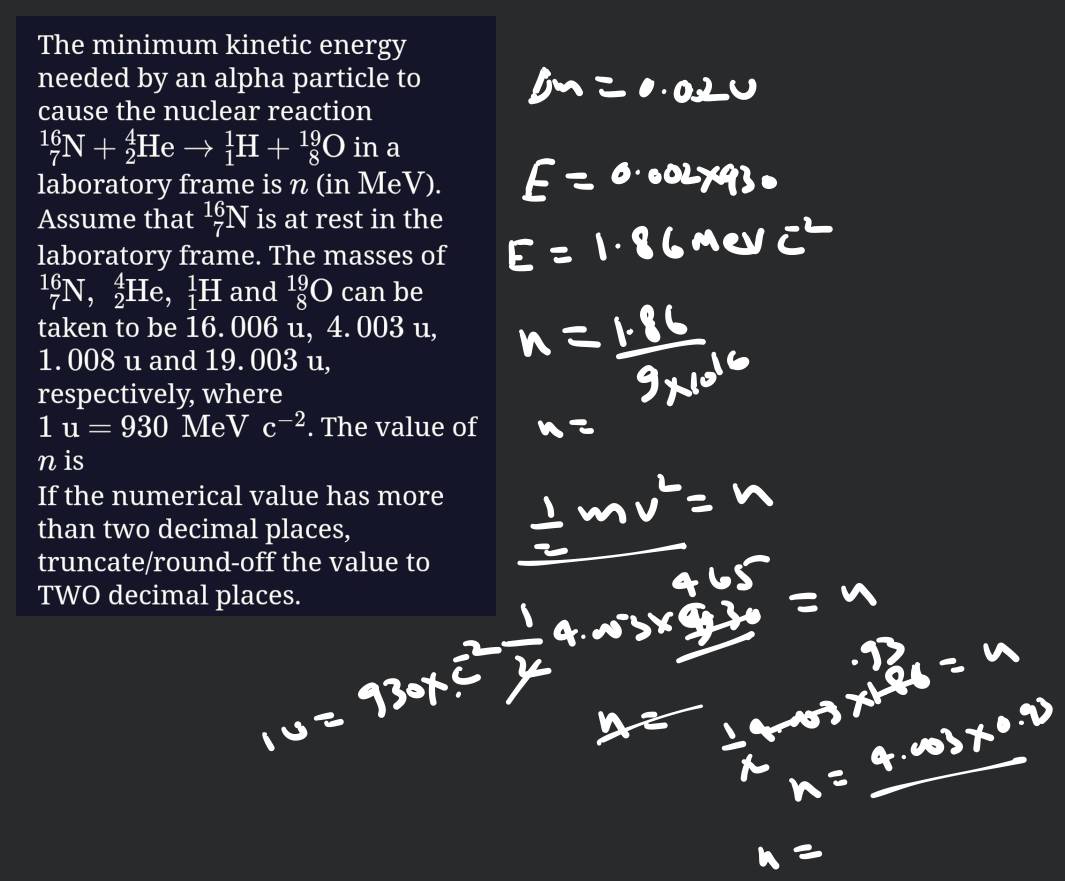 The minimum kinetic energy
needed by an alpha particle to
cause the nuclear reaction
¹⁶₇N + ⁴₂He → ¹₁H + ¹⁹₈O in a
laboratory frame is n (in MeV).
Assume that ¹⁶₇N is at rest in the
laboratory frame. The masses of
¹⁶₇N, ⁴₂He, ¹₁H and ¹⁹₈O can be
taken to be 16.006 u, 4.003 u,
1.008 u and 19.003 u,
respectively, where
1 u = 930 MeV c⁻². The value of
n is
If the numerical value has more
than two decimal places,
truncate/round-off the value to
TWO decimal places.
Δm = 0.02u
E = 0.002×930
E = 1.86 MeV c⁻²
n = 1.86 / 9×10¹⁶
n =
½ mv² = n
½ 4.003 × 930 465 = n
1u = 930 × c⁻²
n =
½ 4.003 × 1.86 .93 = n
n = 4.003 × 0.93
n =